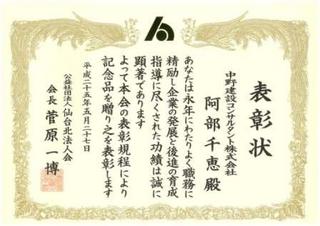 表彰状
中野建設コンサルタント株式会社
阿部千恵殿
あなたは永年にわたりよく職務に
精励し企業の発展と後進の育成
指導に尽くされた功績は誠に
顕著であります
よって本会の表彰規程により
記念品を贈り之を表彰します
平成二十五年五月二十七日
公益社団法人仙台北法人会
会長 菅原一博